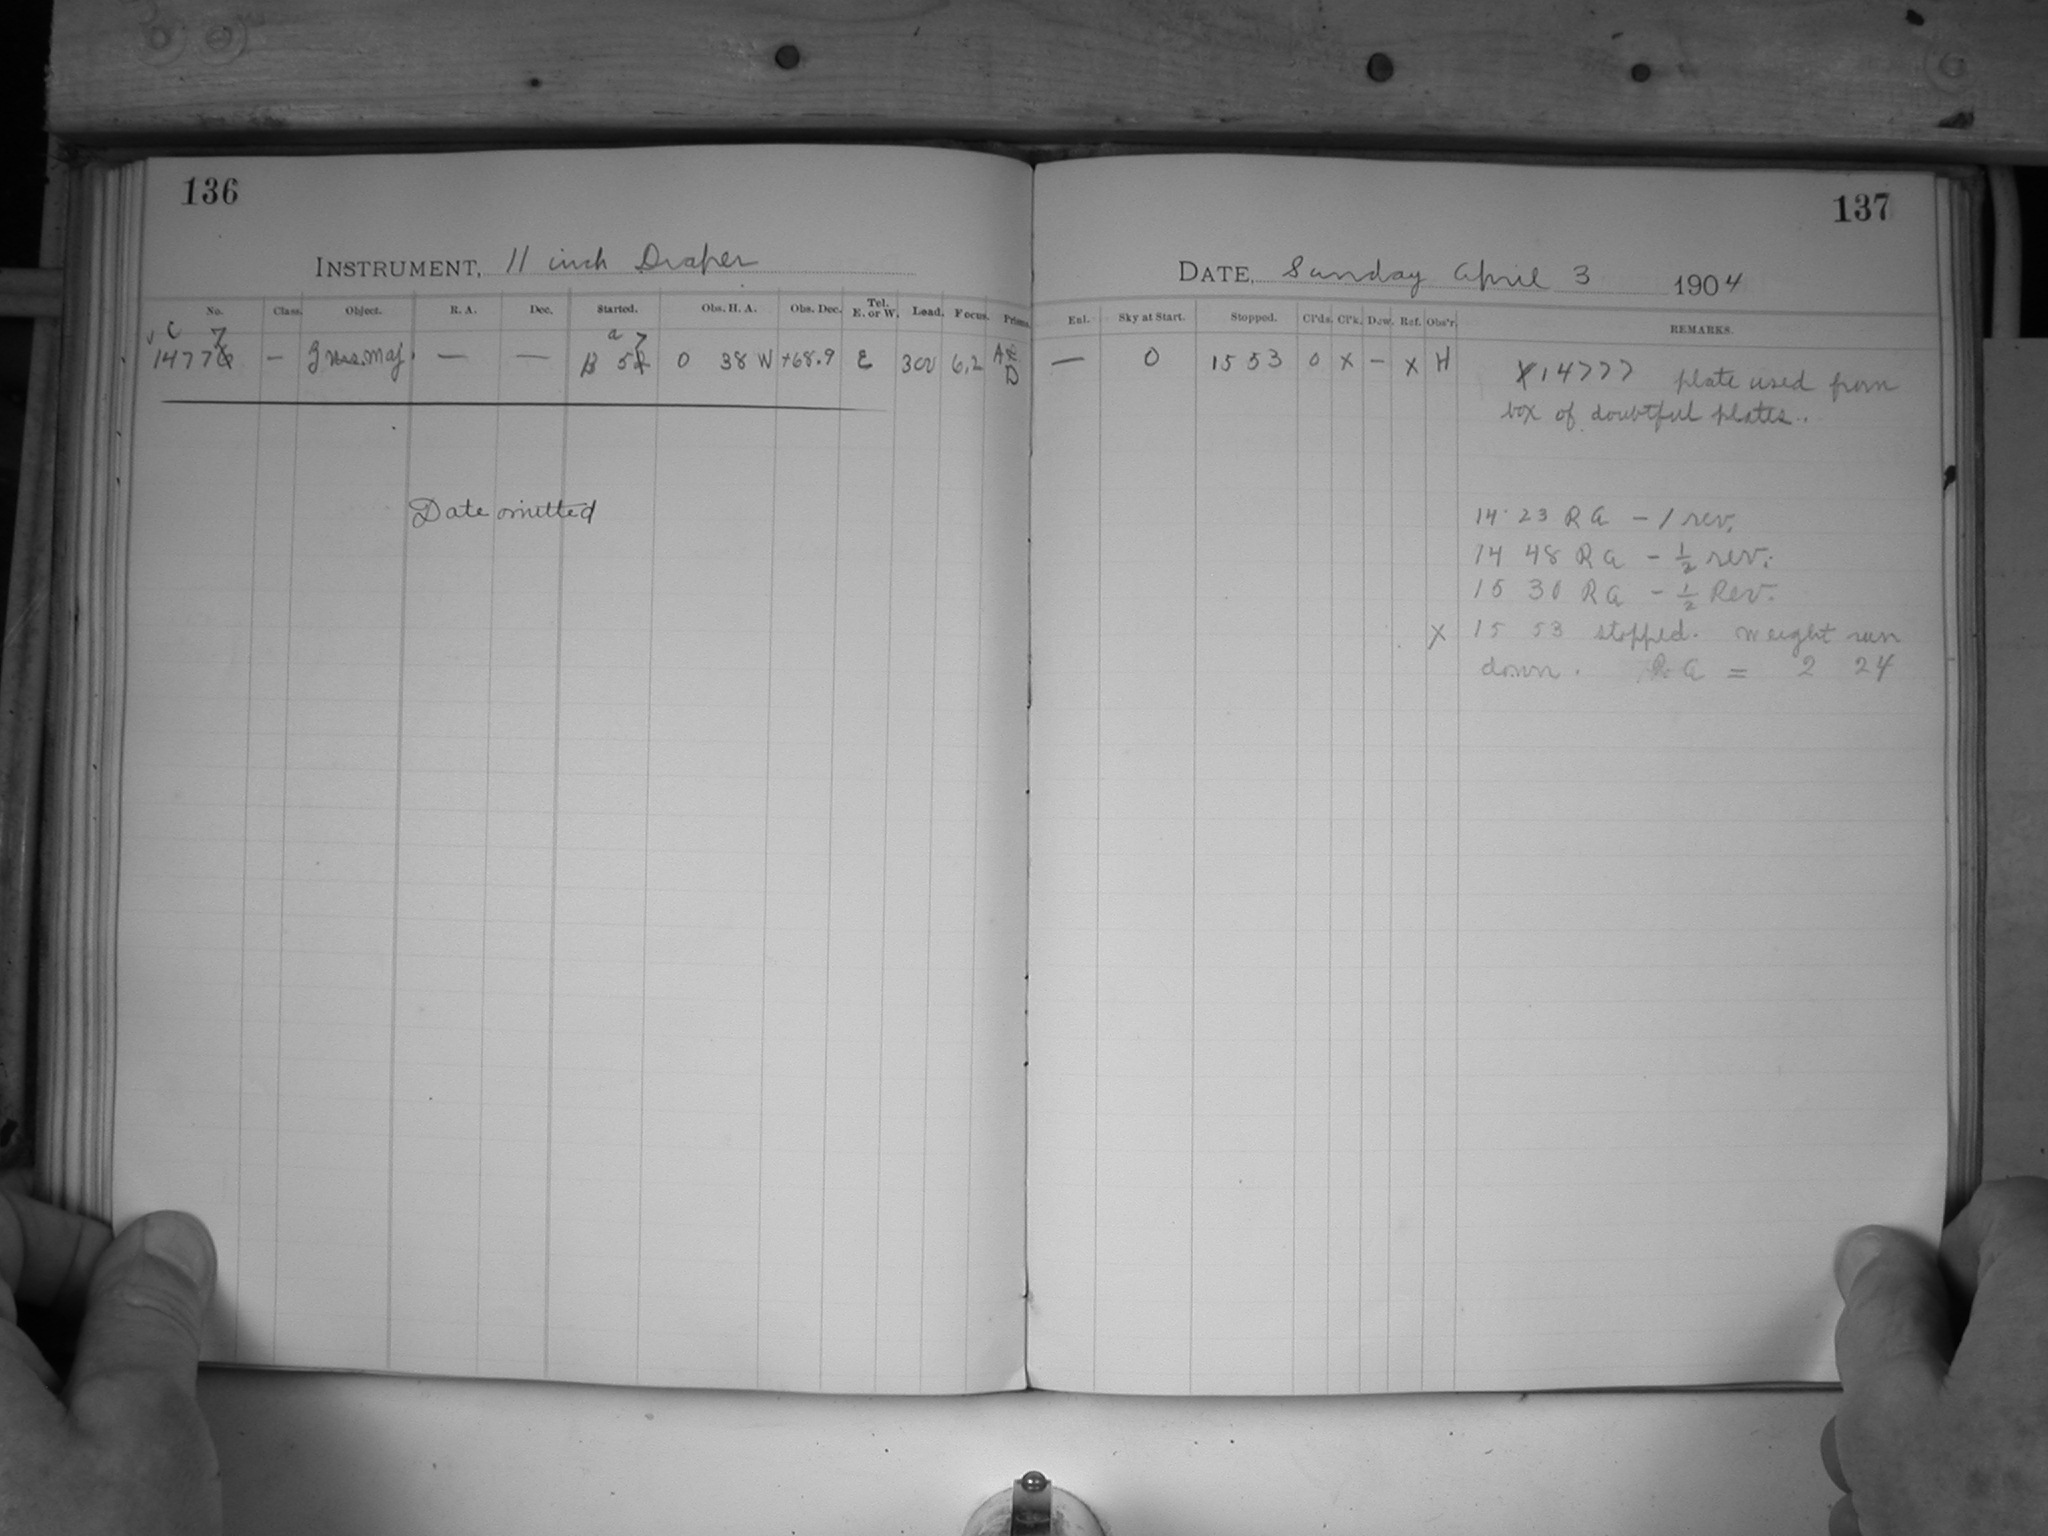 136
INSTRUMENT, 11 inch Draper
No. Class. Object. R. A. Dec. Started. Obs. H. A. Obs. Dec. Tel. E. or W. Load. Focus. Prisms.
C 7 a 7
1477 — Maj. — — B 5 0 38 W +68.9 E 300 6.2 A
D
Date omitted
137
DATE, Sunday April 3 1904
Enl. Sky at Start. Stopped. Cl'ds. Cl'k. Dew. Ref. Obs'r. REMARKS.
— 0 15 53 0 X – X H X 14777 plate used from
box of doubtful plates.
14 23 RA – 1 rev.
14 48 RA – 1/2 rev.
15 30 RA – 1/2 Rev.
X 15 53 stopped. weight run
down. RA = 2 24